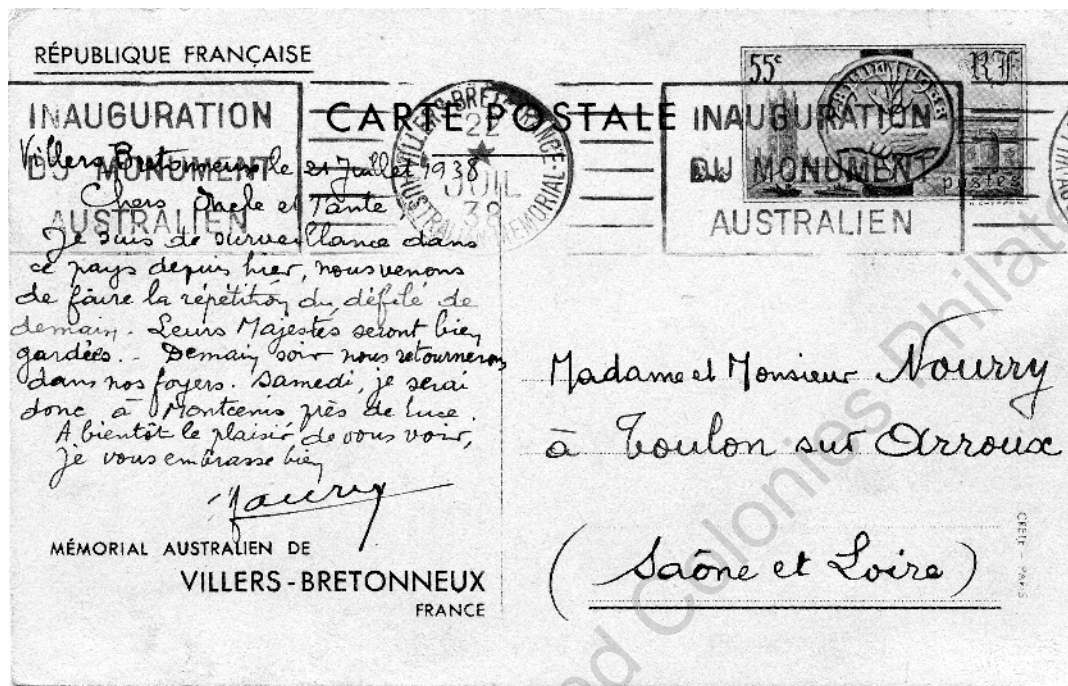 RÉPUBLIQUE FRANÇAISE
55c
RF
postes
INAUGURATION
DU MONUMENT
AUSTRALIEN
CARTE POSTALE
VILLERS-BRET FRANCE
22
JUIL
38
AUSTRALIAN MEMORIAL
INAUGURATION
DU MONUMENT
AUSTRALIEN
Villers Bretonneux le 21 Juillet 1938
Chers Oncle et Tante
Je suis de surveillance dans
ce pays depuis hier, nous venons
de faire la répétition du défilé de
demain. Leurs Majestés seront bien
gardées. - Demain soir nous retournerons
dans nos foyers. Samedi, je serai
donc à Montcenis près de Luce.
A bientôt le plaisir de vous voir,
je vous embrasse bien
MÉMORIAL AUSTRALIEN DE
VILLERS-BRETONNEUX
FRANCE
Madame et Monsieur Nourry
à Toulon sur Arroux
(Saône et Loire)
PARIS
and Colonies Philate